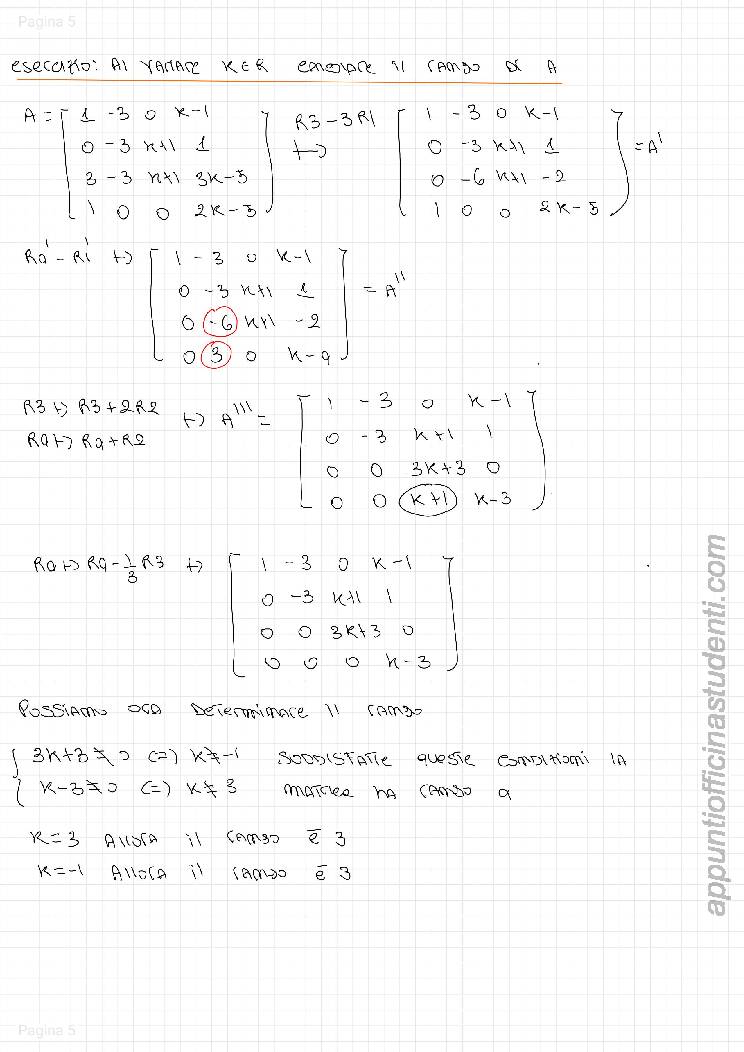 Pagina 5
esercizio: Al variare K ∈ R calcolare il rango di A
A = [ 1 -3 0 k-1 ] R3-3R1 [ 1 -3 0 k-1 ]
[ 0 -3 k+1 1 ] ↦ [ 0 -3 k+1 1 ] = A'
[ 3 -3 k+1 3k-5 ] [ 0 -6 k+1 -2 ]
[ 1 0 0 2k-5 ] [ 1 0 0 2k-5 ]
R4' - R1' ↦ [ 1 -3 0 k-1 ]
[ 0 -3 k+1 1 ] = A''
[ 0 -6 k+1 -2 ]
[ 0 3 0 k-4 ]
R3 ↦ R3+2R2 ↦ A''' = [ 1 -3 0 k-1 ]
R4 ↦ R4+R2 [ 0 -3 k+1 1 ]
[ 0 0 3k+3 0 ]
[ 0 0 k+1 k-3 ]
R4 ↦ R4 - 1/3 R3 ↦ [ 1 -3 0 k-1 ]
[ 0 -3 k+1 1 ]
[ 0 0 3k+3 0 ]
[ 0 0 0 k-3 ]
Possiamo ora determinare il rango
{ 3k+3 ≠ 0 (=) k ≠ -1 soddisfatte queste condizioni la
{ k-3 ≠ 0 (=) k ≠ 3 matrice ha rango 4
k=3 Allora il rango è 3
k=-1 Allora il rango è 3
appuntiofficinastudenti.com
Pagina 5